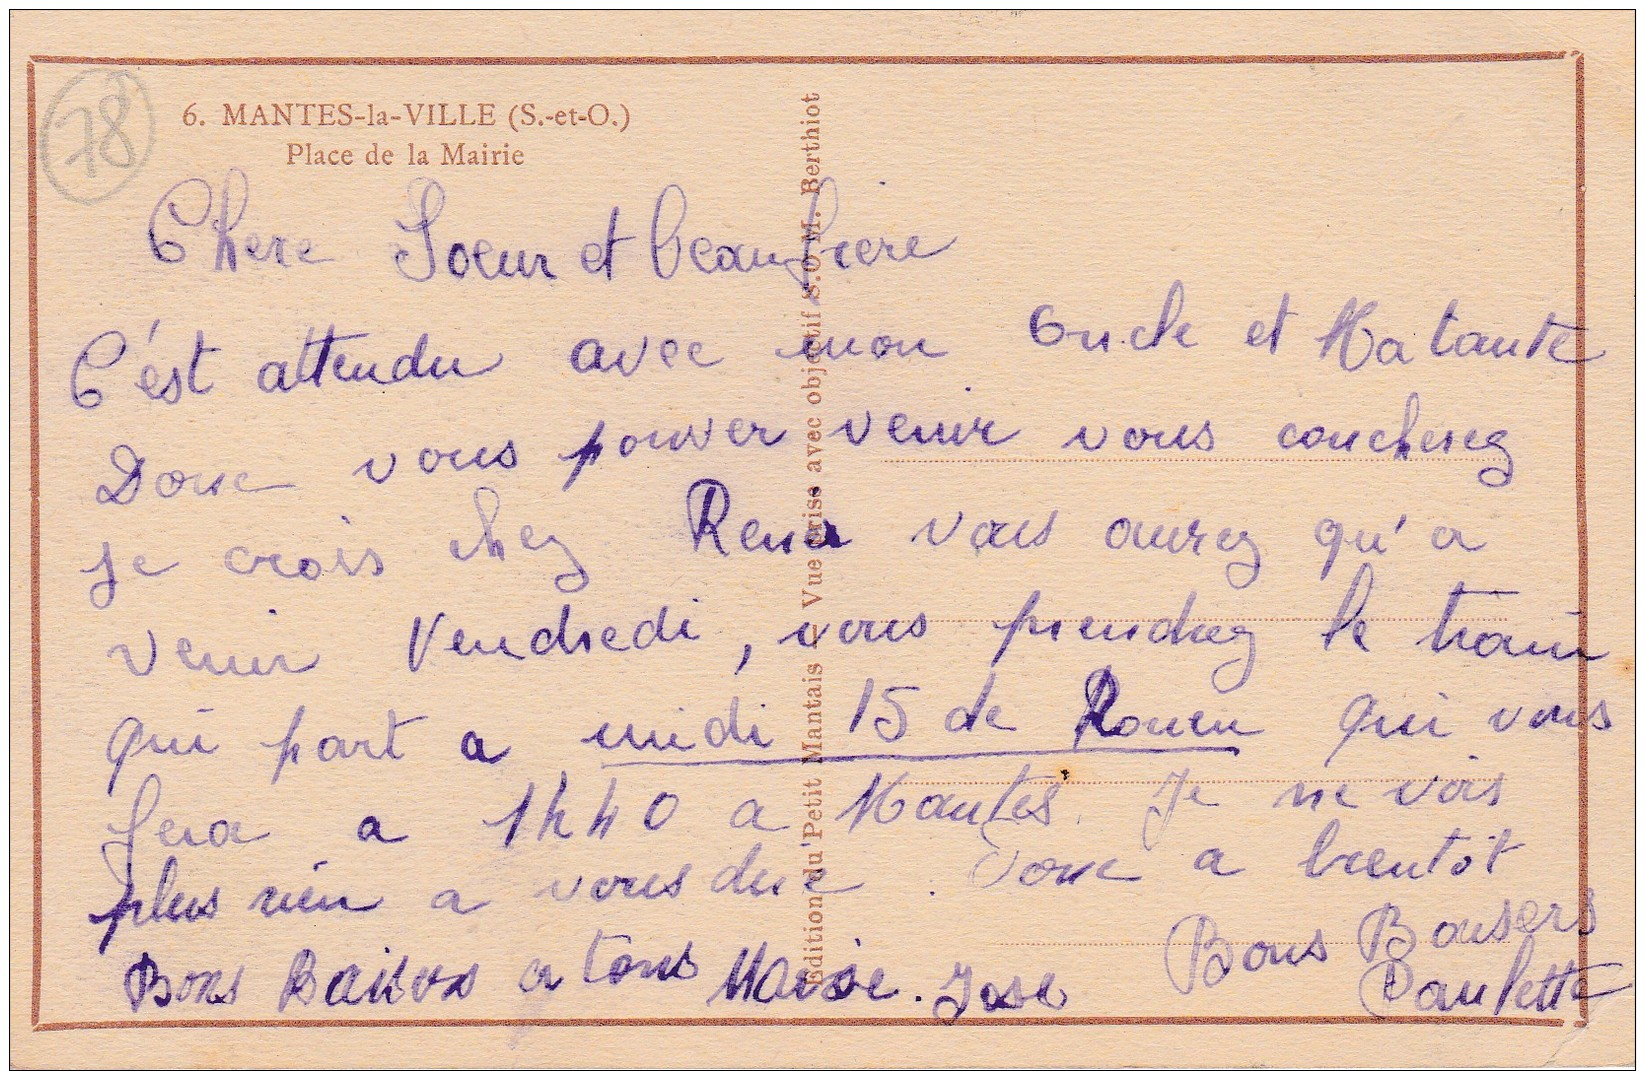 78
6. MANTES-la-VILLE (S.-et-O.)
Place de la Mairie
Chere Soeur et beaufrere
C'est attendu avec mon Oncle et Ma tante
Donc vous pouver venir vous coucherez
je crois chez Rena vous aurez qu'a
venir Vendredi, vous prendrez le train
qui part a midi 15 de Rouen qui vous
fera a 1h40 a Mantes. Je ne vois
plus rien a vous dire. Donc a bientot
Bons Baisers
Paulette
Bons Baisers a tous Marie. Jose
Edition du "Petit Mantais" - Vue prise avec objectif S.O.M. Berthiot